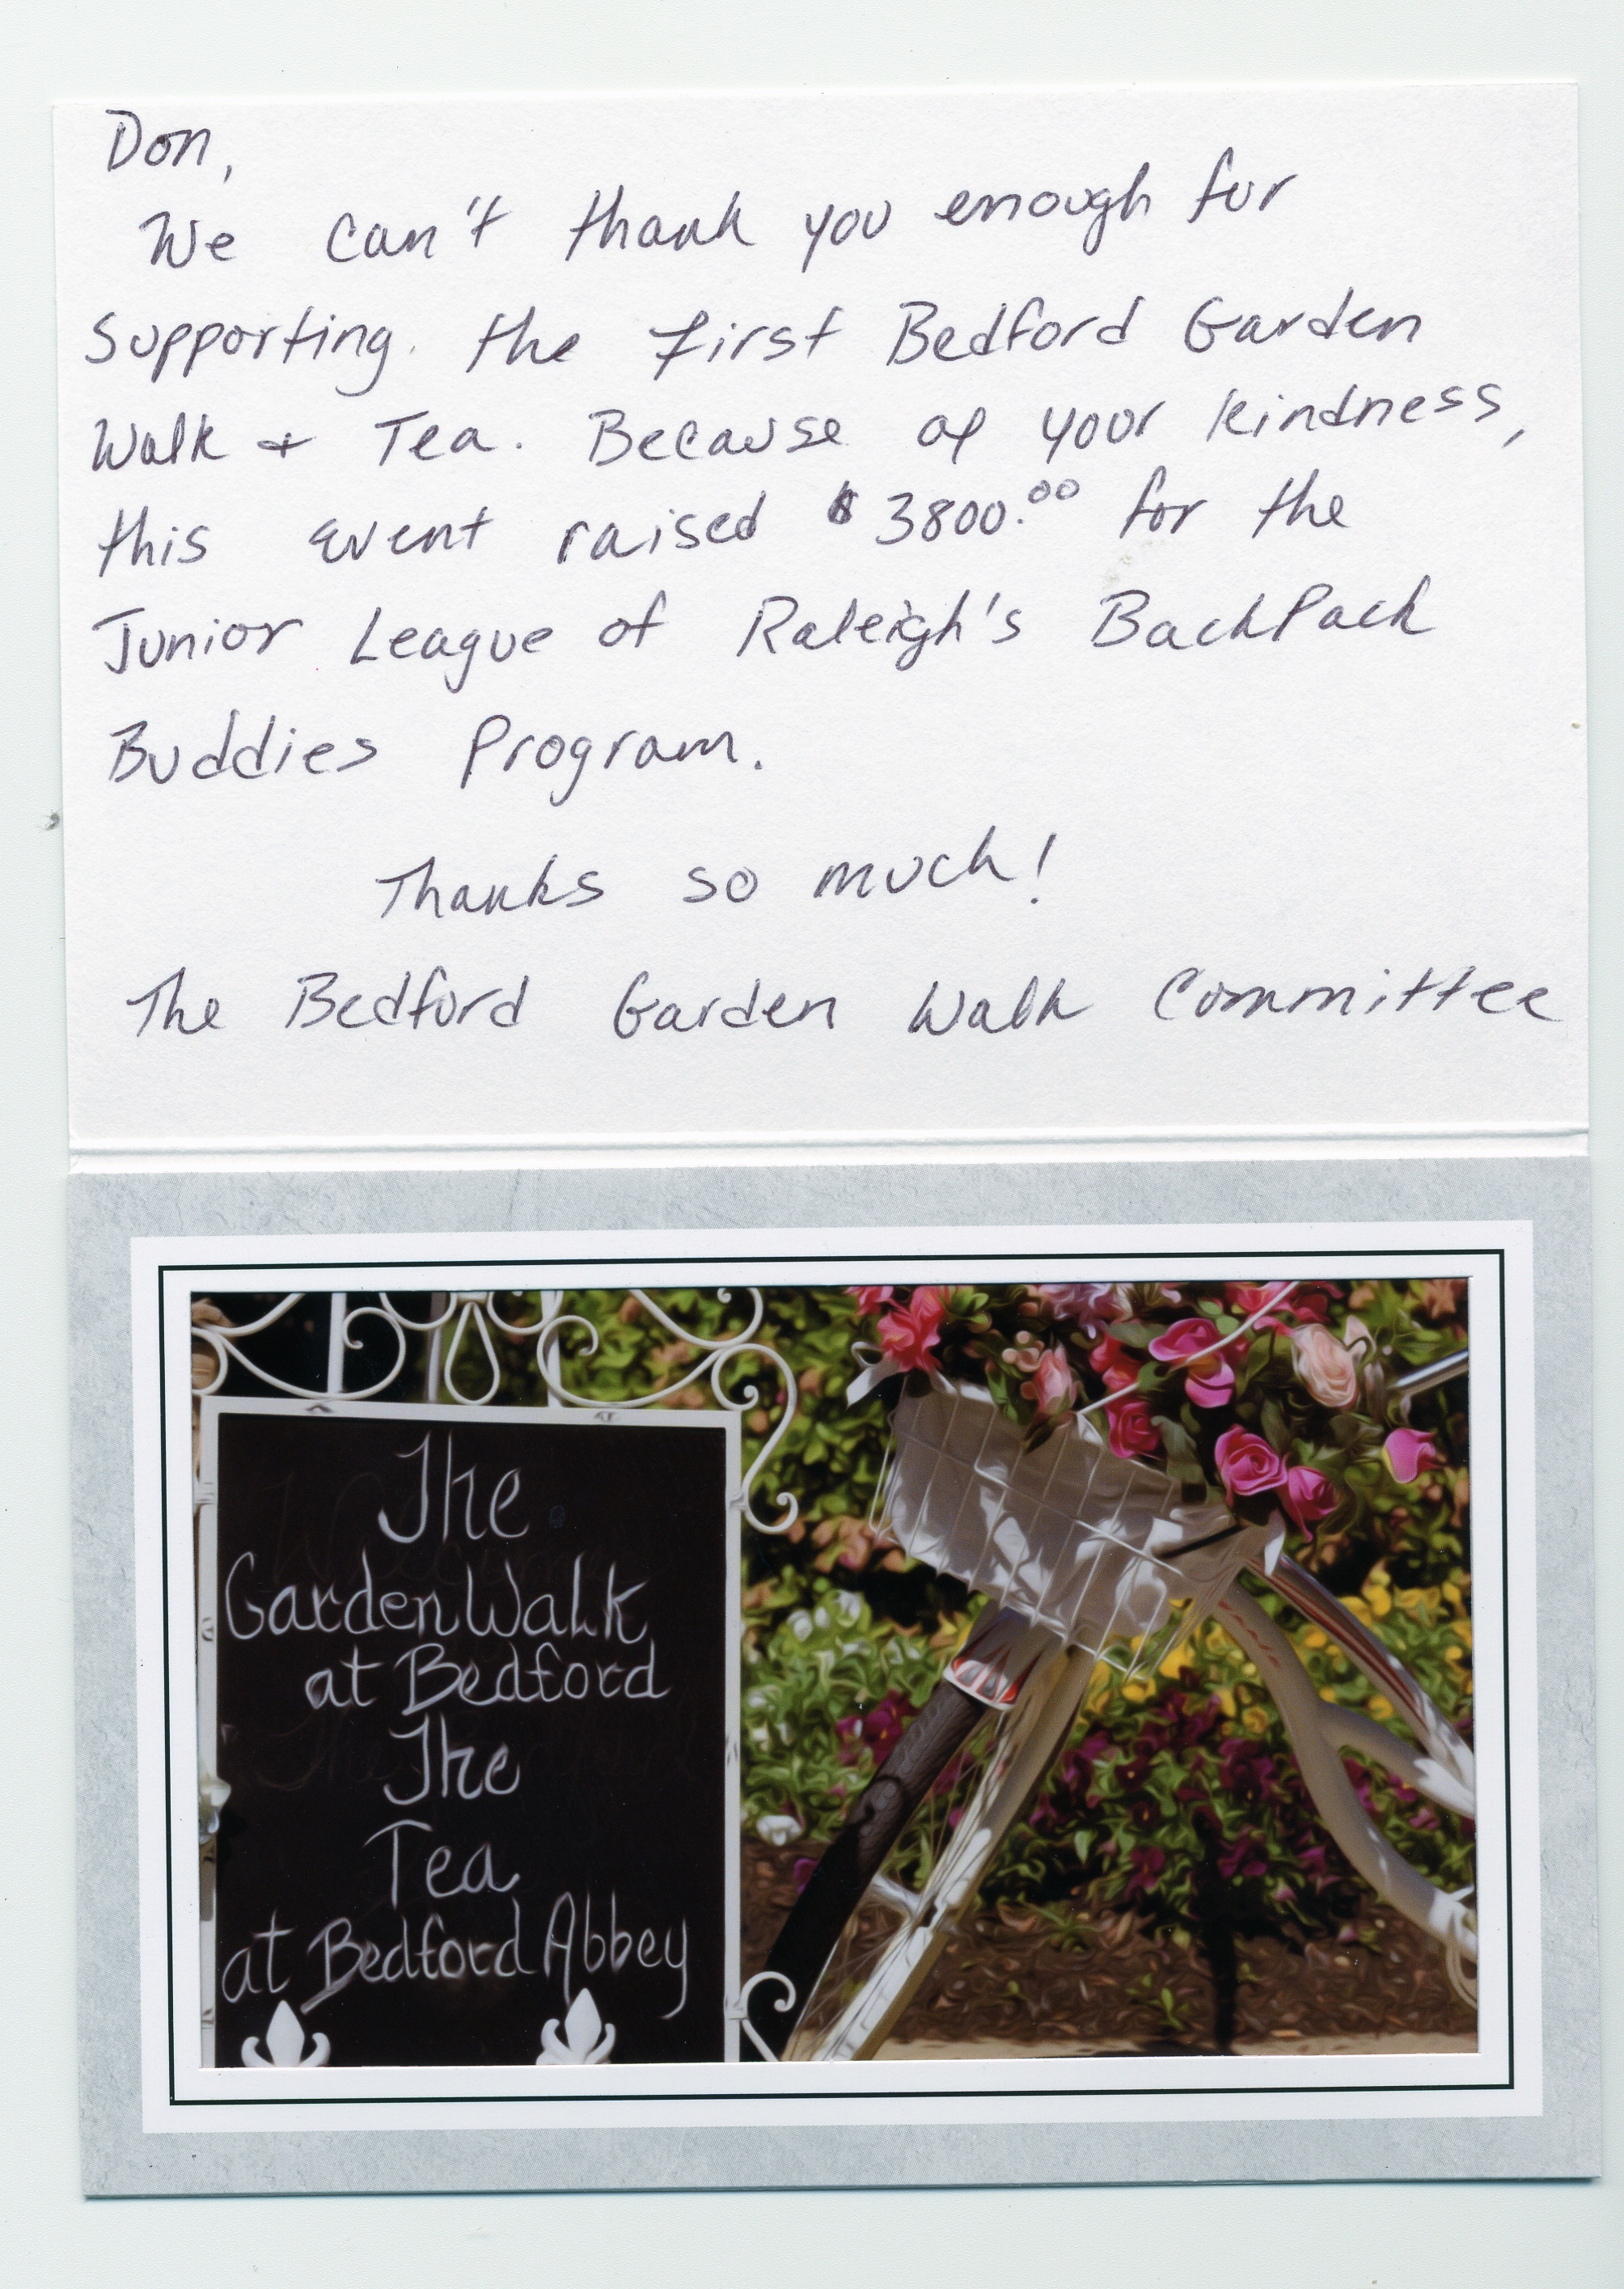 Don,
We can't thank you enough for
supporting the first Bedford Garden
Walk + Tea. Because of your kindness,
this event raised $3800.00 for the
Junior League of Raleigh's BackPack
Buddies Program.
Thanks so much!
The Bedford Garden Walk Committee
The
Garden Walk
at Bedford
The
Tea
at Bedford Abbey